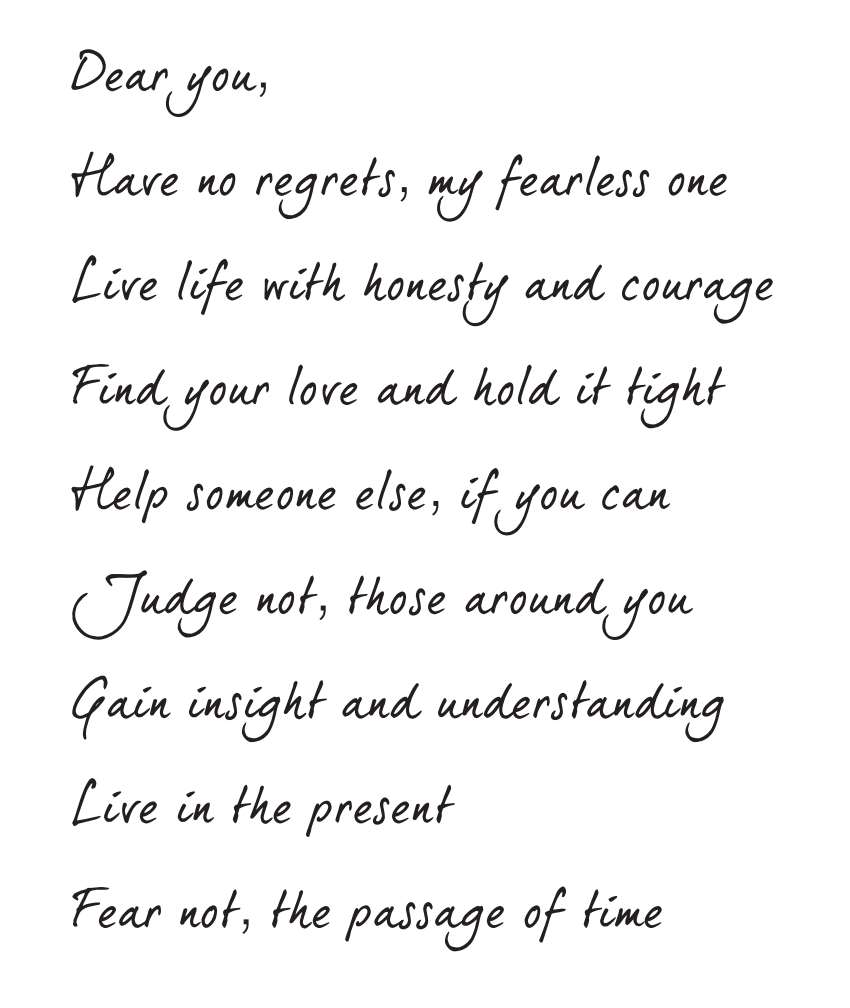 Dear you,
Have no regrets, my fearless one
Live life with honesty and courage
Find your love and hold it tight
Help someone else, if you can
Judge not, those around you
Gain insight and understanding
Live in the present
Fear not, the passage of time